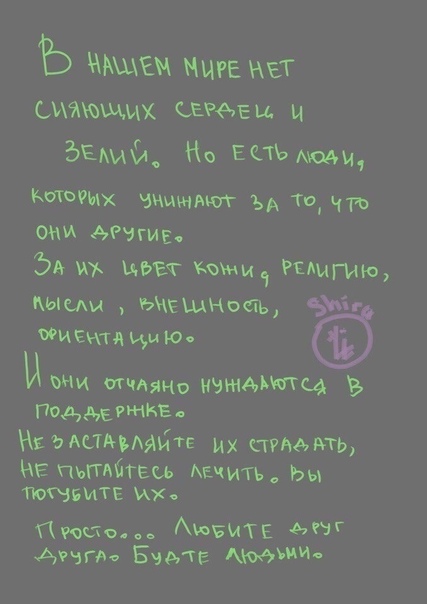 В НАШЕМ МИРЕ НЕТ
СИЯЮЩИХ СЕРДЕЦ И
ЗЕЛИЙ. НО ЕСТЬ ЛЮДИ,
КОТОРЫХ УНИЖАЮТ ЗА ТО, ЧТО
ОНИ ДРУГИЕ.
ЗА ИХ ЦВЕТ КОЖИ, РЕЛИГИЮ,
МЫСЛИ, ВНЕШНОСТЬ,
Shira
ОРИЕНТАЦИЮ.
И ОНИ ОТЧАЯНО НУЖДАЮТСЯ В
ПОДДЕРЖКЕ.
НЕ ЗАСТАВЛЯЙТЕ ИХ СТРАДАТЬ,
НЕ ПЫТАЙТЕСЬ ЛЕЧИТЬ. ВЫ
ПОГУБИТЕ ИХ.
ПРОСТО... ЛЮБИТЕ ДРУГ
ДРУГА. БУДТЕ ЛЮДЬМИ.